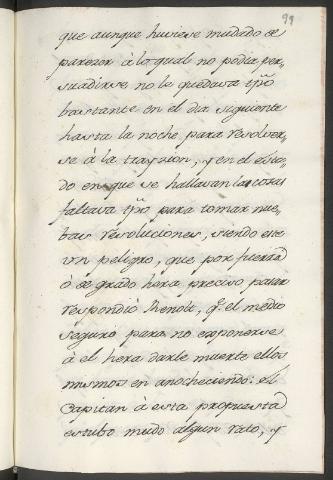 99
que aunque huviese mudado de
parezer à lo qual no podia per-
suadirse no le quedava tpõ
bastante en el dia siguiente
hasta la noche para resolver-
se à la traysion, y en el esta-
do en que se hallavan las cosas
faltava tpõ para tomar nue-
bas resoluciones, siendo ese
un peligro, que por fuerza
ò de grado hera preciso pasar
respondiò Benoit, q̃. el medio
seguro para no exponerse
à èl hera darle muerte ellos
mismos en anocheciendo: el
Capitan à esta propuesta
estubo mudo algun rato, y